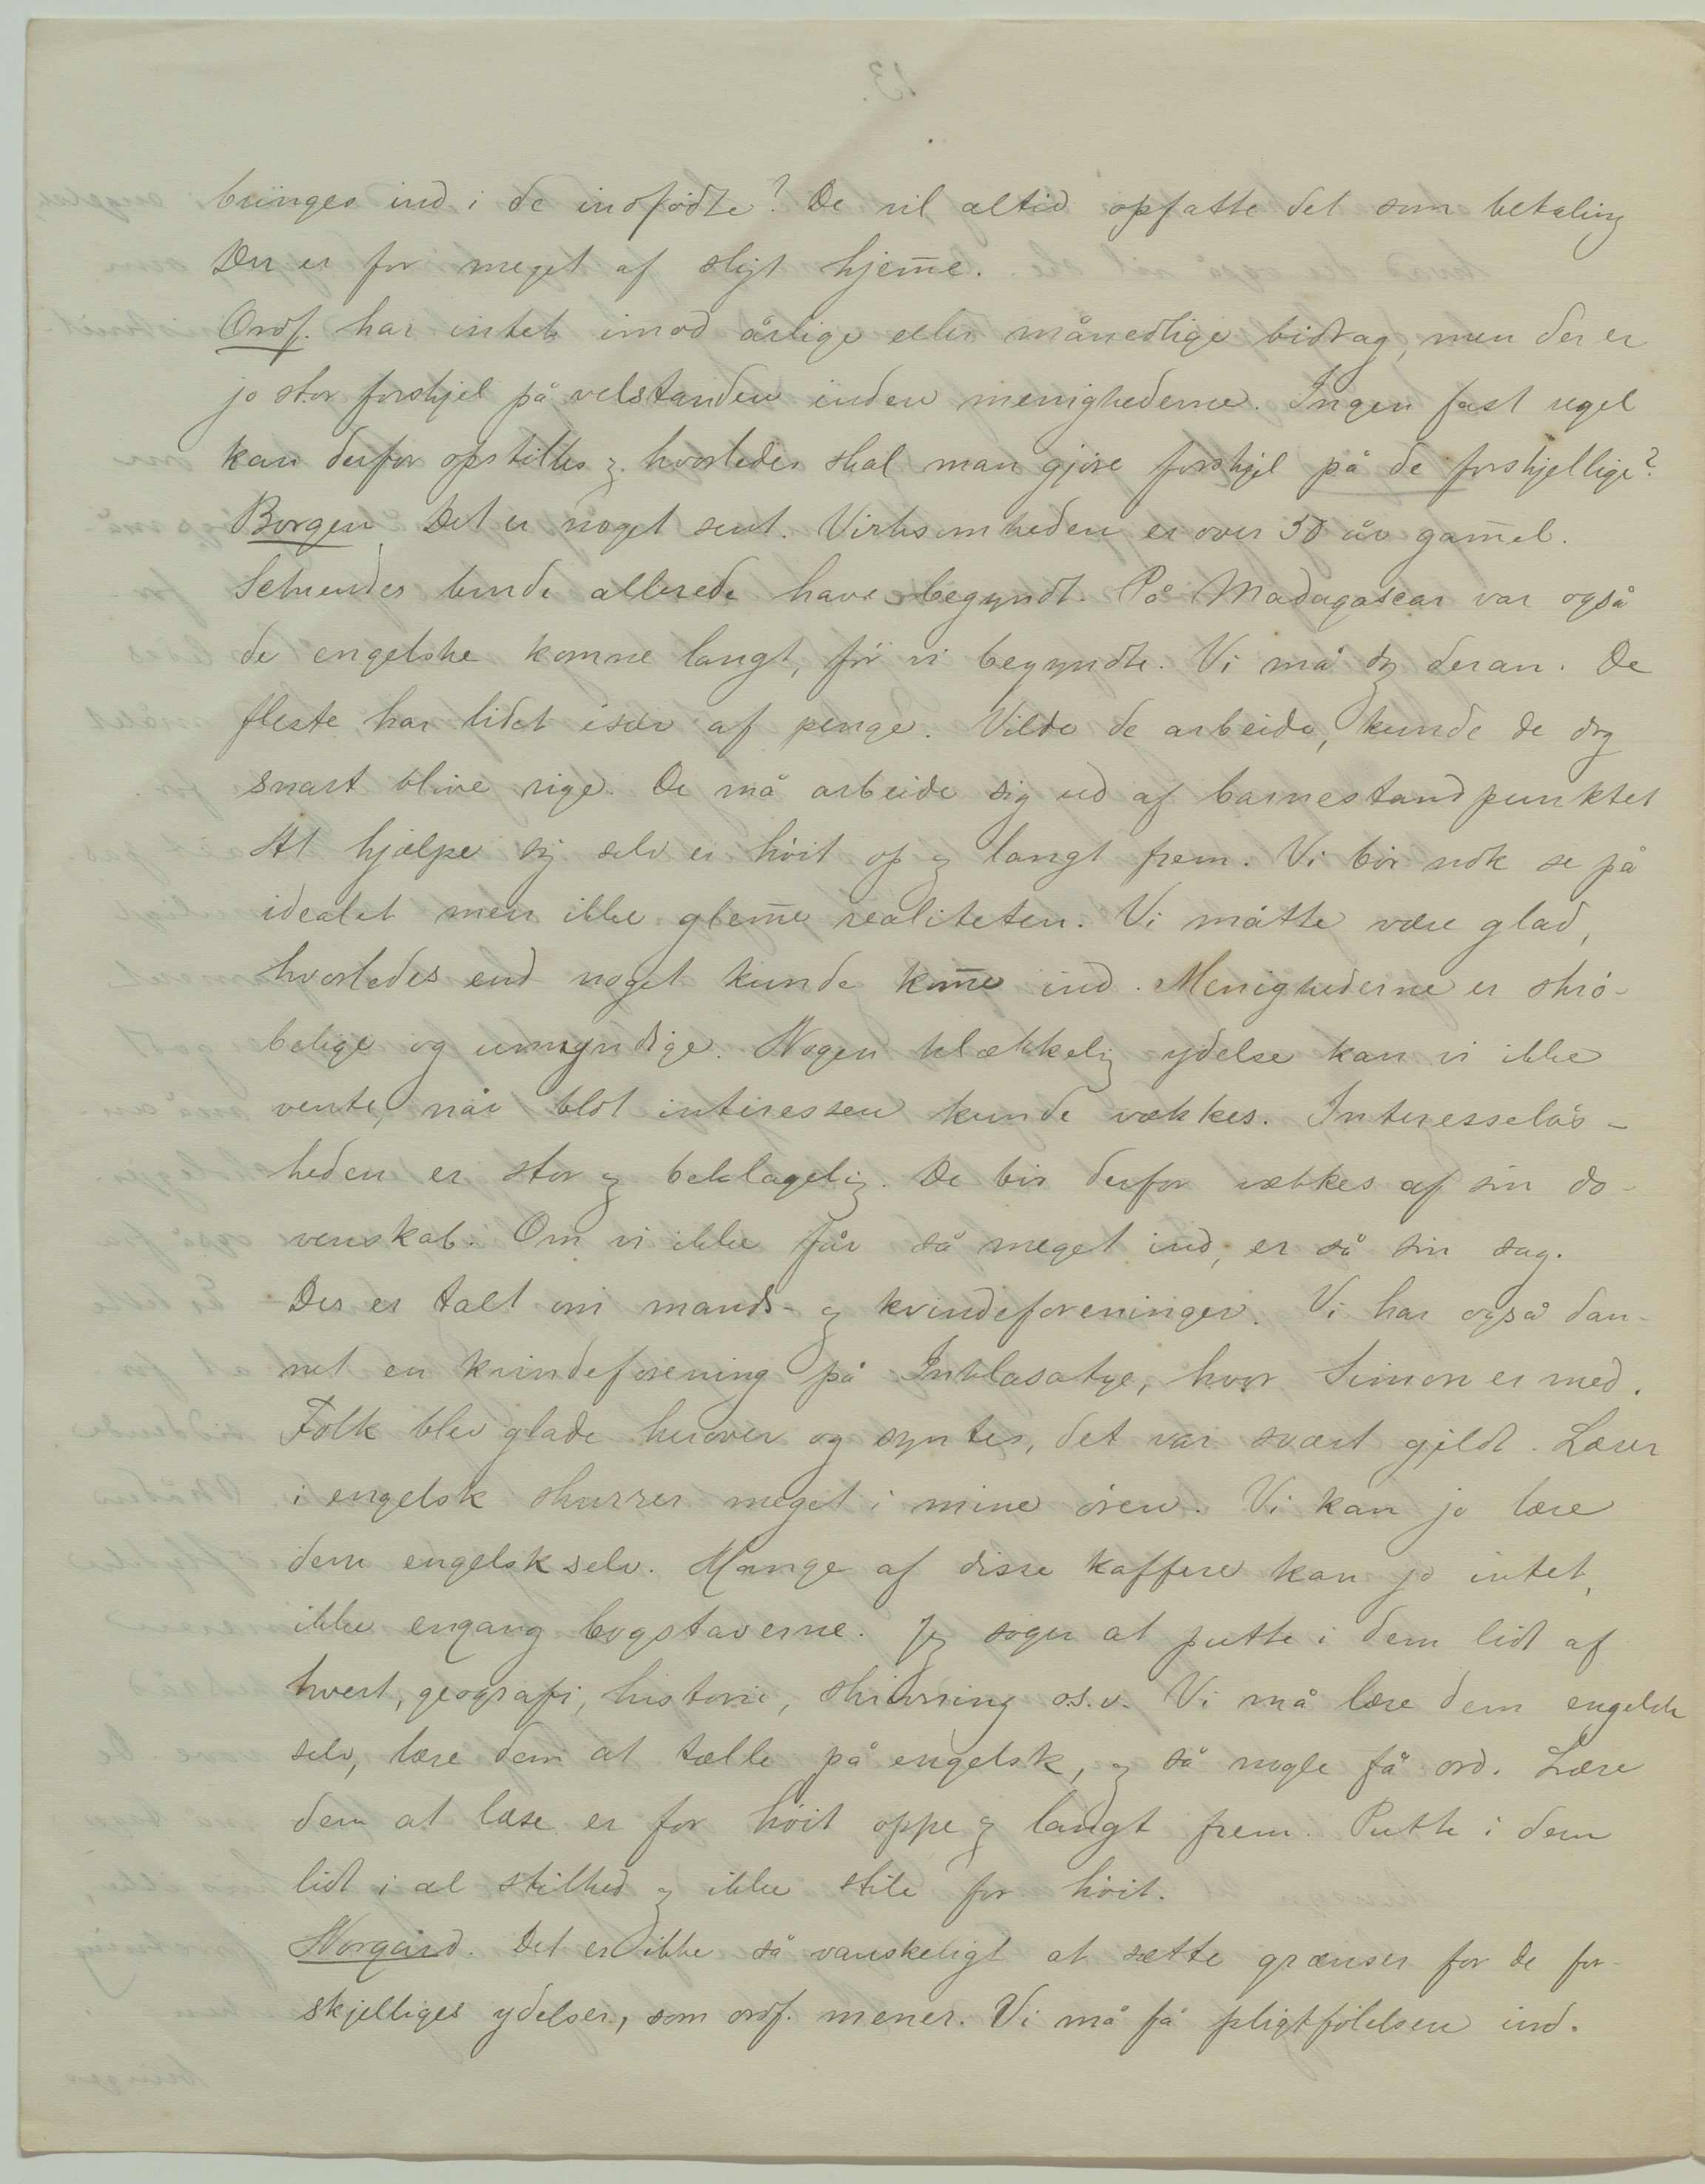 bringes ind i de indfødte? De vil altid opfatte det som betaling
Der er for meget af sligt hjem̄e.
Ordf. har intet imod årlige eller månedlige bidrag, men der er
jo stor forskjel på velstanden inden menighederne. Ingen fast regel
kan derfor opstilles og hvorledes skal man gjöre forskjel på de forskjellige?
Borgen. Det er noget sent. Virksomheden er over 30 år gam̄el.
Schreuder burde allerede have begyndt. På Madagascar var også
de engelske komne langt, för vi begyndte. Vi må dog deran. De
fleste har lidet især af penge. Vilde de arbeide, kunde de dog
snart blive rige. De må arbeide sig ud af barnestandpunktet
At hjælpe sig selv er höit op og langt frem. Vi bör nok se på
idealet men ikke glem̄e realiteten. Vi måtte være glad,
hvorledes end noget kunde kom̄e ind. Menighederne er skrö-
belige og umyndige. Nogen klækkelig ydelse kan vi ikke
vente, når blot interessen kunde vækkes. Interesselös-
heden er stor og beklagelig. De bör derfor vækkes af sin do-
venskab. Om vi ikke får så meget ind, er så sin sag.
Der er talt om mands- og kvindeforeninger. Vi har også dan-
net en kvindeforening på Inhlasatye, hvor Simon er med.
Folk blev glade herover og syntes, det var svært gjildt. Lærer
i engelsk skurrer meget i mine ören. Vi kan jo lære
dem engelsk selv. Mange af disse kaffere kan jo intet,
ikke engang bogstaverne. Jeg söger at putte i dem lidt af
hvert, geografi, historie, skrivning o.s.v. Vi må lære dem engelsk
selv, lære dem at tælle på engelsk, og så nogle få ord. Lære
dem at læse er for höit oppe og langt frem. Putte i dem
lidt i al stilhed og ikke stile for höit.
Norgård. Det er ikke så vanskeligt at sætte grænser for de for-
skjelliges ydelser, som ordf. mener. Vi må få pligtfölelsen ind.